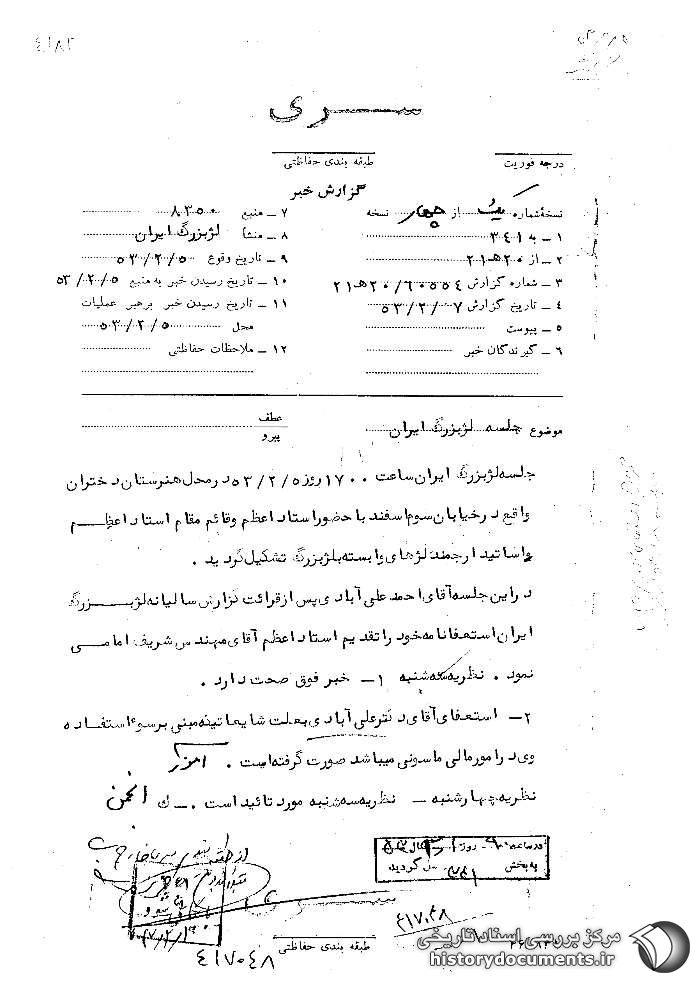 سری
درجه فوریت
طبقه بندی حفاظتی
گزارش خبر
نسخهٔ شماره یک از چهار نسخه
۱ ـ به ۳۴۱
۲ ـ از ۲۰هـ۲۱
۳ ـ شماره گزارش ۲۰/۶۰۵۵۴هـ۲۱
۴ ـ تاریخ گزارش ۵۳/۲/۷
۵ ـ پیوست
۶ ـ گیرندگان خبر
۷ ـ منبع ۸۳۵۰
۸ ـ منشأ لژبزرگ ایران
۹ ـ تاریخ وقوع ۵۳/۲/۵
۱۰ ـ تاریخ رسیدن خبر به منبع ۵۳/۲/۵
۱۱ ـ تاریخ رسیدن خبر برهبر عملیات
محل ۵۳/۲/۵
۱۲ ـ ملاحظات حفاظتی
موضوع جلسه لژبزرگ ایران
عطف
پیرو
جلسه لژبزرگ ایران ساعت ۱۷۰۰ روز ۵۳/۲/۵ در محل هنرستان دختران
واقع در خیابان سوم اسفند با حضور استاد اعظم و قائم مقام استاد اعظم
و اساتید ارجمند لژهای وابسته بلژبزرگ تشکیل گردید .
در این جلسه آقای احمد علی آبادی پس از قرائت گزارش سالیانه لژبزرگ
ایران استعفانامه خود را تقدیم استاد اعظم آقای مهندس شریف امامی
نمود . نظریه سه شنبه ۱ـ خبر فوق صحت دارد .
۲ـ استعفای آقای دکتر علی آبادی بعلت شایعاتیکه مبنی بر سوء استفاده
وی در امور مالی ماسونی میباشد صورت گرفته است .
نظریه چهارشنبه ـ نظریه سه شنبه مورد تائید است . ـ ک
در ساعت روز
به بخش ۳۴۱ گردید
سری
طبقه بندی حفاظتی
۴۱۷۰۴۸
۴۱۷۰۴۸
مرکز بررسی اسناد تاریخی
historydocuments.ir